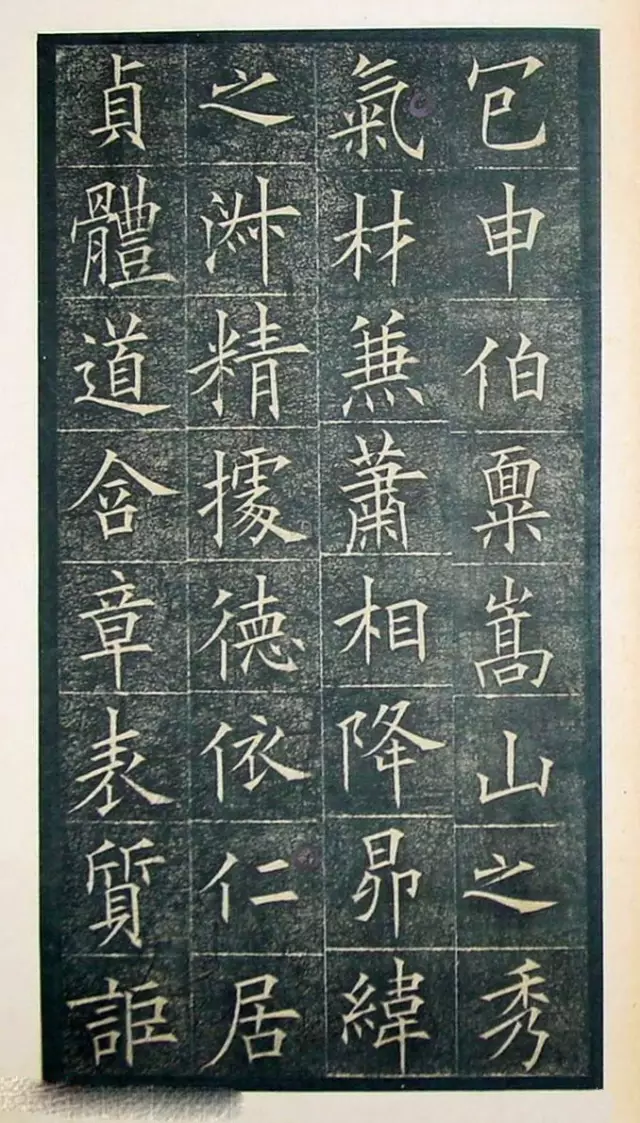 冝申伯禀嵩山之秀
氣材蕭相降昴緯
之淋精據德依仁居
貞體道含章表質詎